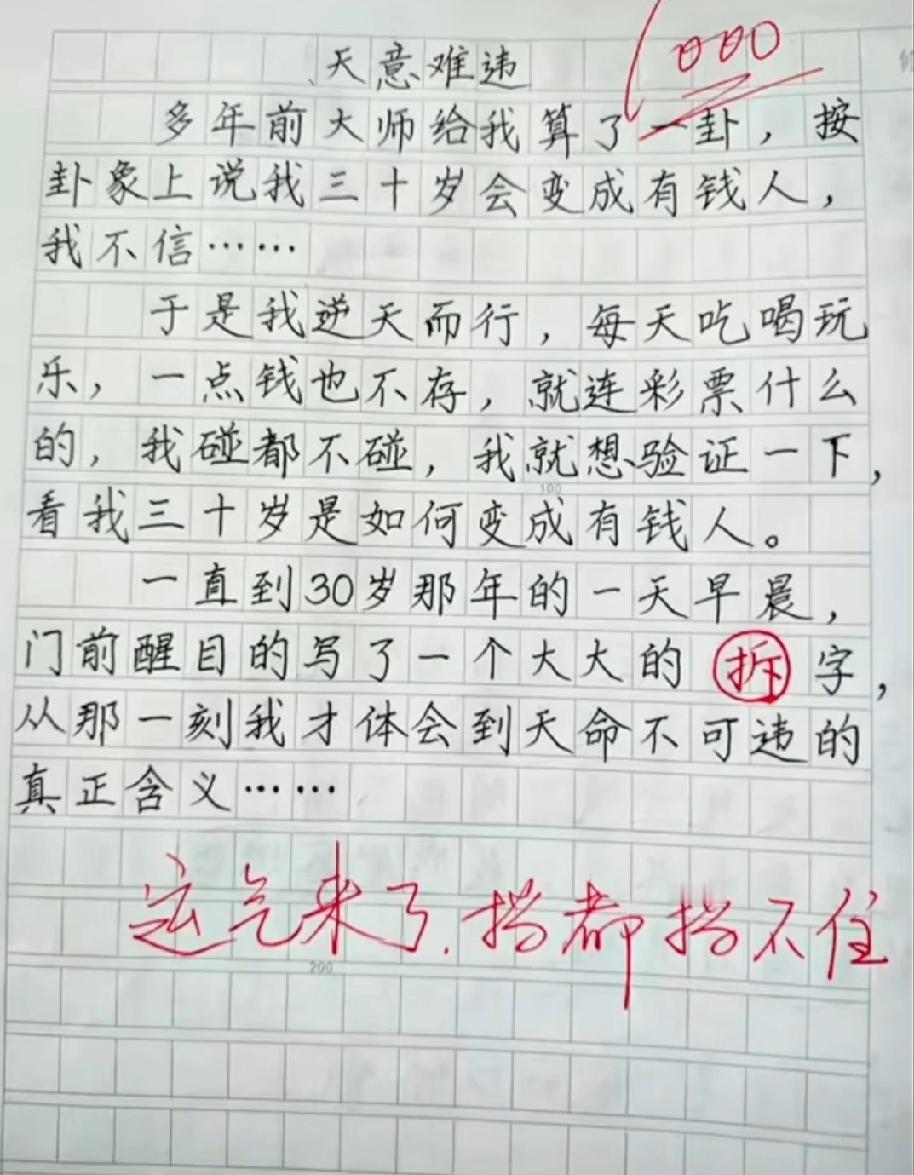 天意难违
1000
多年前大师给我算了一卦，按
卦象上说我三十岁会变成有钱人，
我不信……
于是我逆天而行，每天吃喝玩
乐，一点钱也不存，就连彩票什么
的，我碰都不碰，我就想验证一下，
100
看我三十岁是如何变成有钱人。
一直到30岁那年的一天早晨，
门前醒目的写了一个大大的拆字，
从那一刻我才体会到天命不可违的
真正含义……
运气来了，挡都挡不住
200